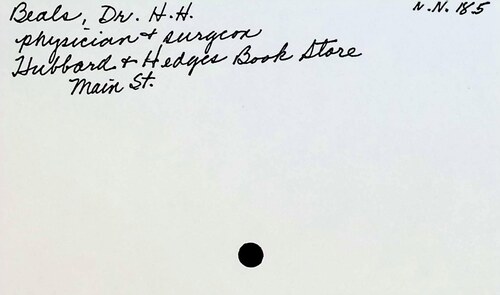 Beals, Dr. H.H. N.N. 185
physician & surgeon
Hubbard & Hedges Book Store
Main St.